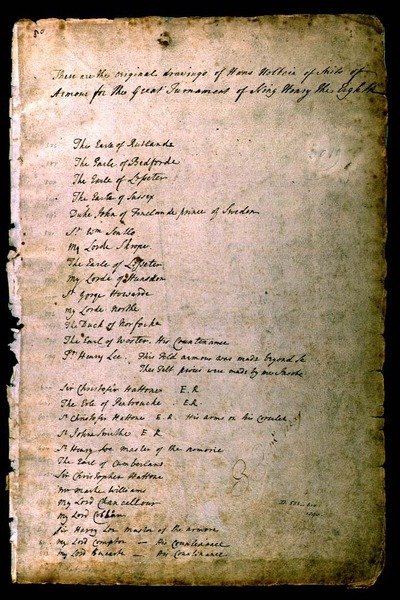 These are the original drawings of Hans Holbein of Suits of
Armour for the Great Turnamens of King Henry the Eighth
The Earle of Rutlande
The Earle of Bedforde
The Earle of Lesseter
The Earle of Sussex
Duke John of Fineland prince of Sweden
Sr. Wm Sentlo
My Lorde Skrope
The Earle of Lesseter
My Lorde of Hunsdon
Sr. Gorge Howarde
my Lorde Northe
The Duck of Norfocke
The Earl of Worter. His Countenance
Sr. Henry Lee. This feld armour was made beyond Se
These felt peces were made by me Jacobe
Ser Christofer Hattone E R
The Erle of Penbrouke E.R.
Sr Christofer Hattone E R. His arms on his
Sr Johne Smithe E R
Sr Henry Lee master of the armorie
The Earl of Cumberland
Sir Christopher Hattone
Mr Macke Williams
My Lord Chancellour
My Lord Cobham
Sir Harry Lee Master of the armore
My Lord Compton — His Countinance
My Lord Bucarte — His Countinance